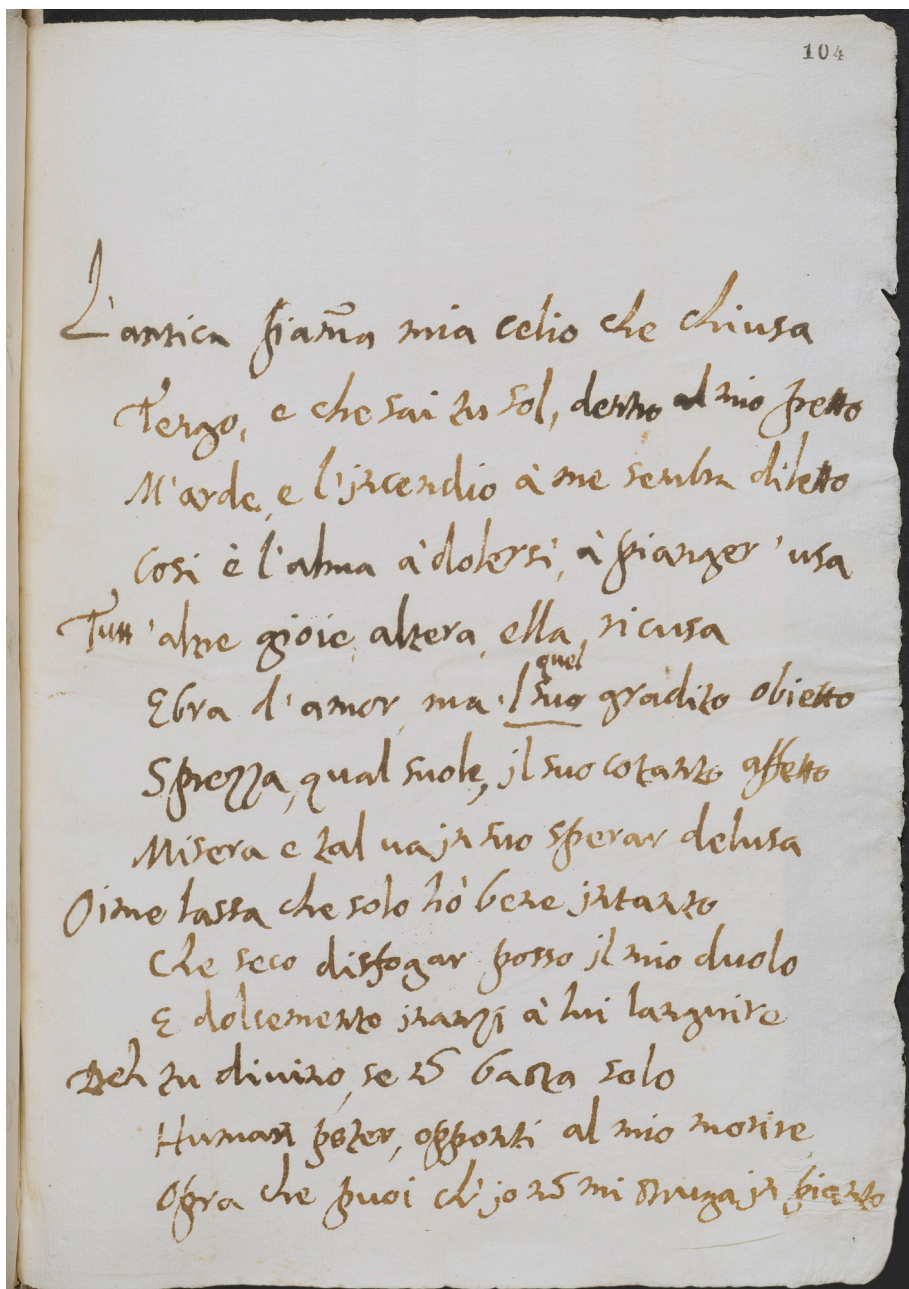 104
L'antica fiam̃a mia Celio che chiusa
Tengo, e che sai tu sol, dentro al mio petto
M'arde, e l'jncendio à me sembra diletto
Cosi è l'alma à dolersi, à pianger' usa
Tutt'altre gioie, altera, ella, ricusa
quel
Ebra d'amor, ma 'l suo gradito obietto
Sprezza, qual suole, jl suo cotanto affetto
Misera e tal ua jn suo sperar delusa
Oime lassa che solo hò bene jntanto
Che seco disfogar posso jl mio duolo
E dolcemente jnanzi à lui languire
Deh tu diuino, se nõ basta solo
Human poter, opponti al mio morire
Opra che puoi ch'jo nõ mi strugga jn pianto